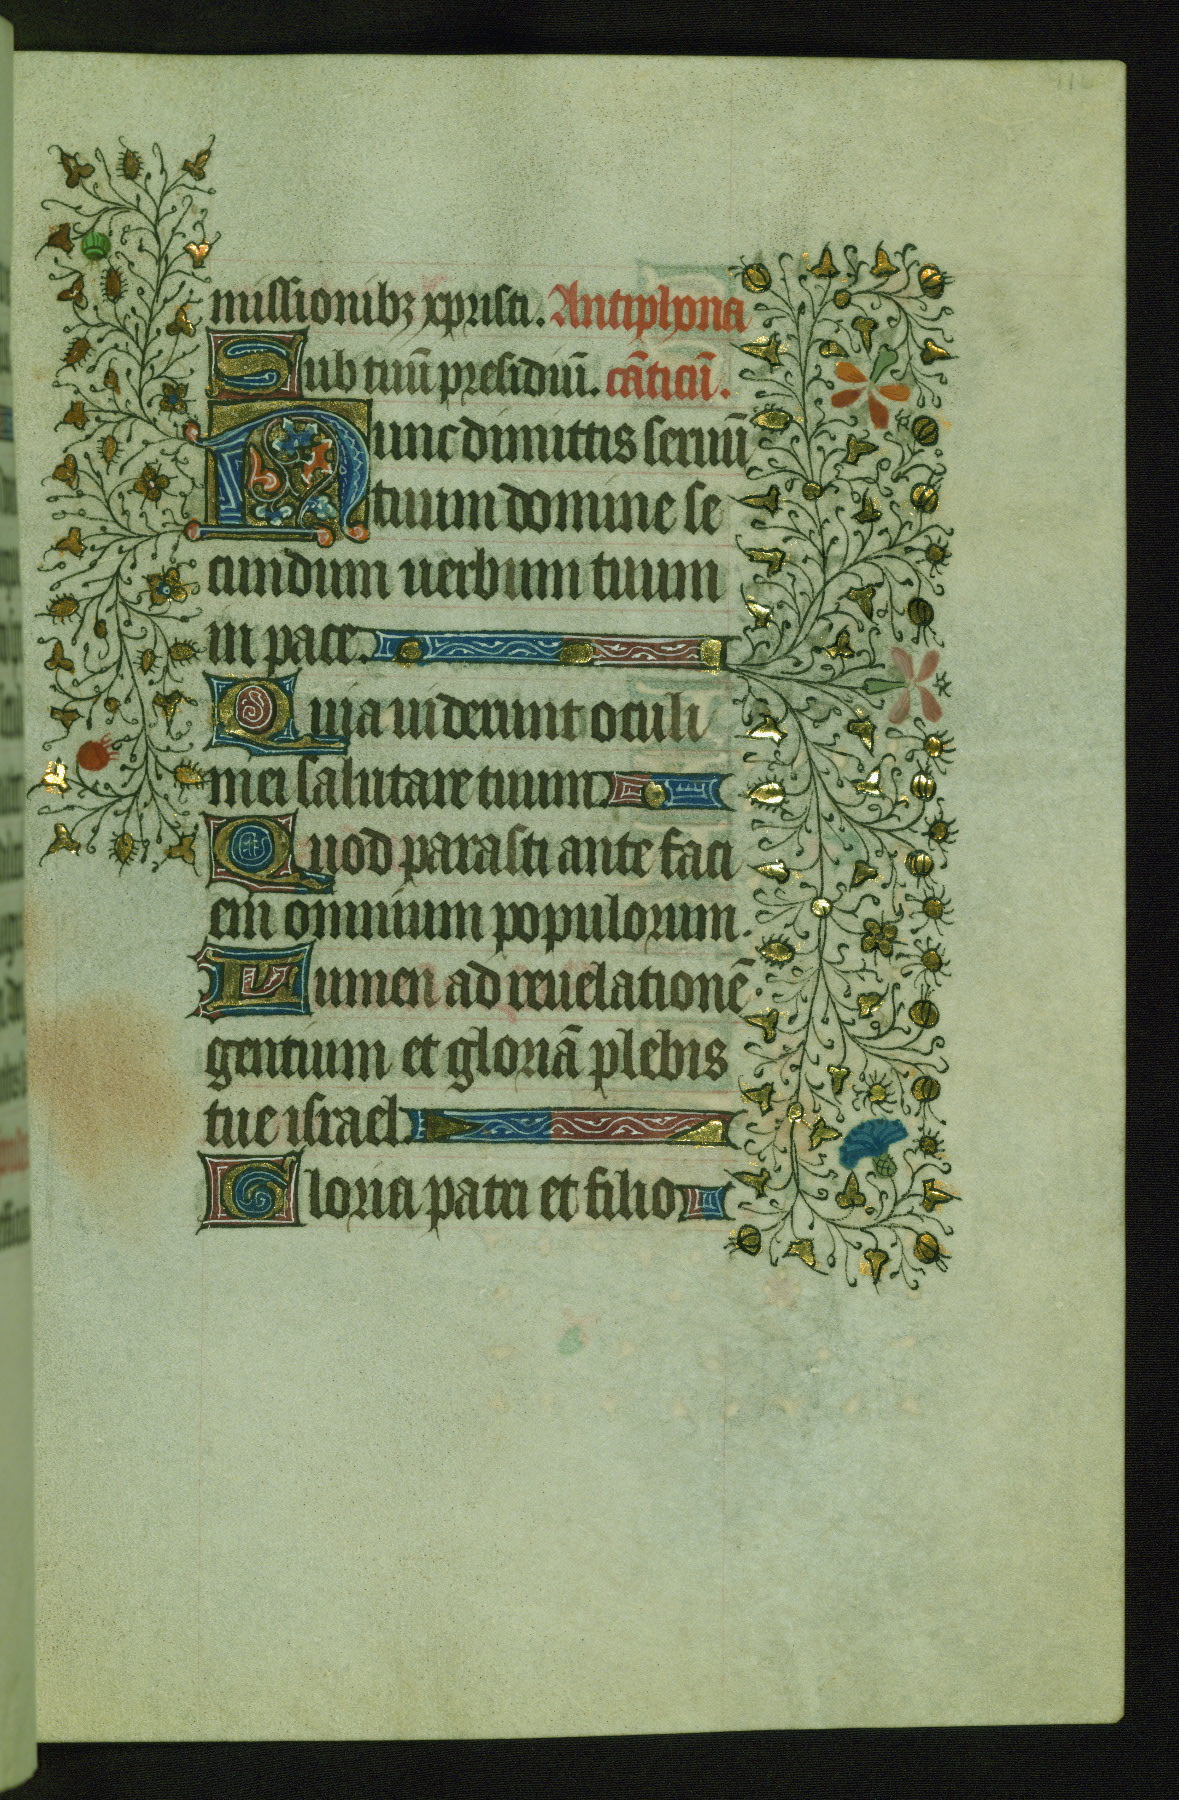 missionibꝫ xpristi. Antiphona
Sub tuū presidiū. cāticū.
Nunc dimittis seruū
tuum domine se
cundum uerbum tuum
in pace.
Quia uiderunt oculi
mei salutare tuum.
Quod parasti ante faci
em omnium populorum.
Lumen ad reuelationē
gentium et gloriā plebis
tue israel.
Gloria patri et filio